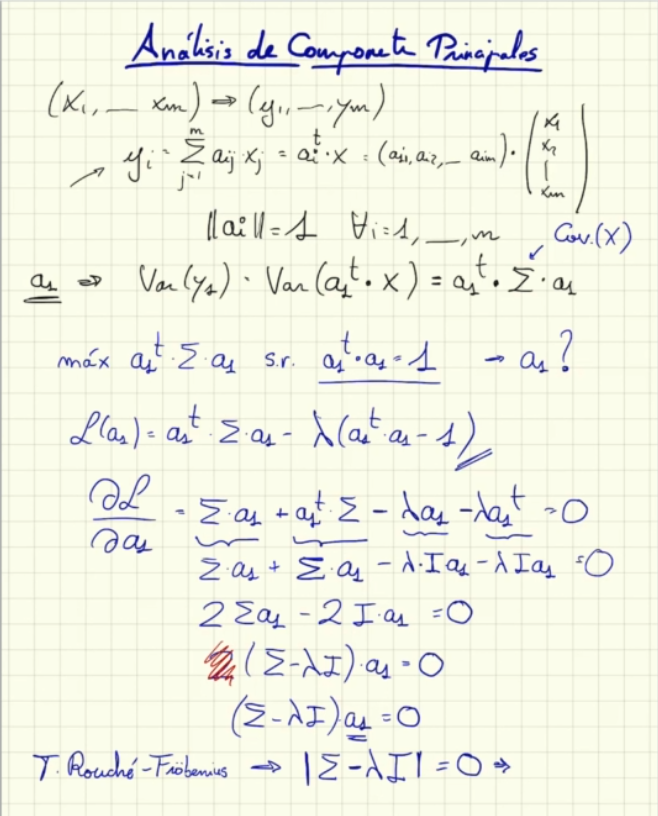 Análisis de Componete Principales
(x₁, __ xm) ⇒ (y₁, __, ym)
yi = Σ_{j=1}^{m} aij xj = ai^t · x = (ai1, ai2, __ aim) · (x1 x2 | xm)
‖ai‖ = 1 ∀i = 1, __, m Cov.(X)
a1 ⇒ Var(y1) = Var(a1^t · X) = a1^t · Σ · a1
máx a1^t · Σ · a1 s.r. a1^t · a1 = 1 → a1?
L(a1) = a1^t · Σ · a1 - λ(a1^t · a1 - 1)
∂L/∂a1 = Σ · a1 + a1^t · Σ - λa1 - λa1^t = 0
Σ · a1 + Σ · a1 - λ · I a1 - λ I a1 = 0
2 Σ a1 - 2 I · a1 = 0
(Σ - λI) · a1 = 0
(Σ - λI) a1 = 0
T. Rouché-Fröbenius → |Σ - λI| = 0 ⇒